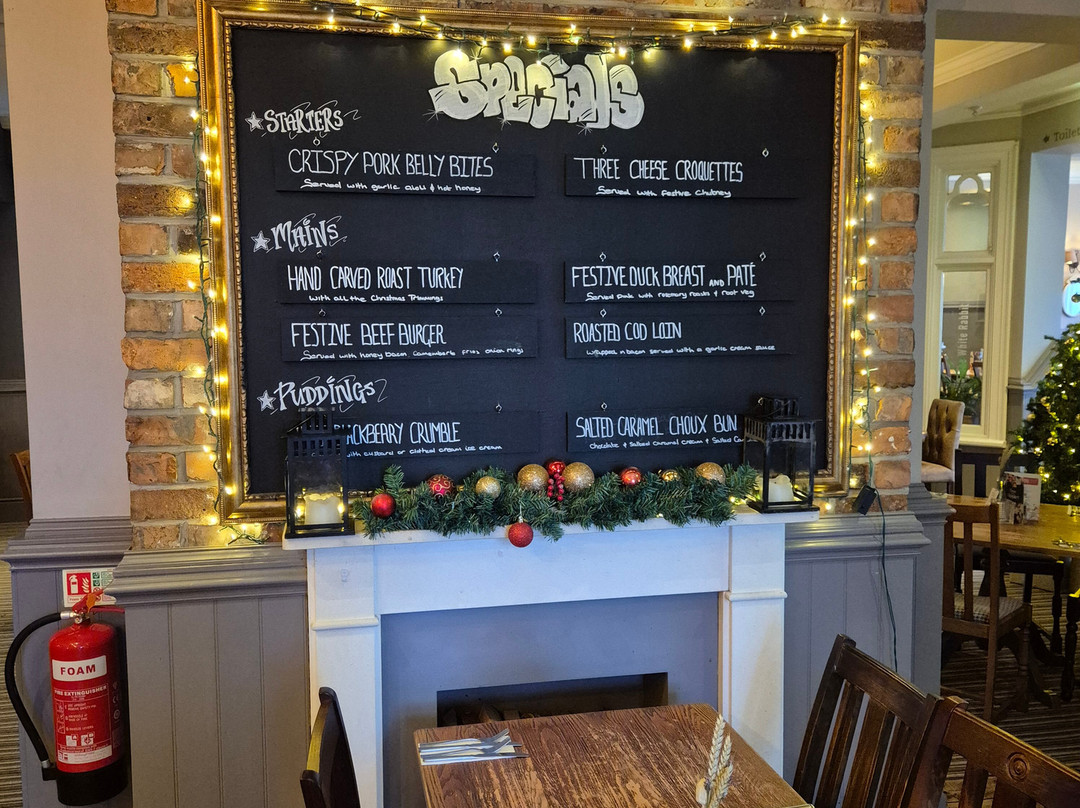 Specials
STARTERS
CRISPY PORK BELLY BITES
Served with garlic aioli & hot honey
THREE CHEESE CROQUETTES
Served with festive chutney
MAINS
HAND CARVED ROAST TURKEY
with all the Christmas Trimmings
FESTIVE DUCK BREAST AND PATÉ
Served with rosemary roasts & root veg
FESTIVE BEEF BURGER
Served with honey bacon Camembert fries onion rings
ROASTED COD LOIN
wrapped in bacon served with a garlic cream sauce
PUDDINGS
BLACKBERRY CRUMBLE
with custard or clotted cream ice cream
SALTED CARAMEL CHOUX BUN
chocolate & Salted Caramel cream & Salted
FOAM
FIRE EXTINGUISHER
Toilet
White Rabbit